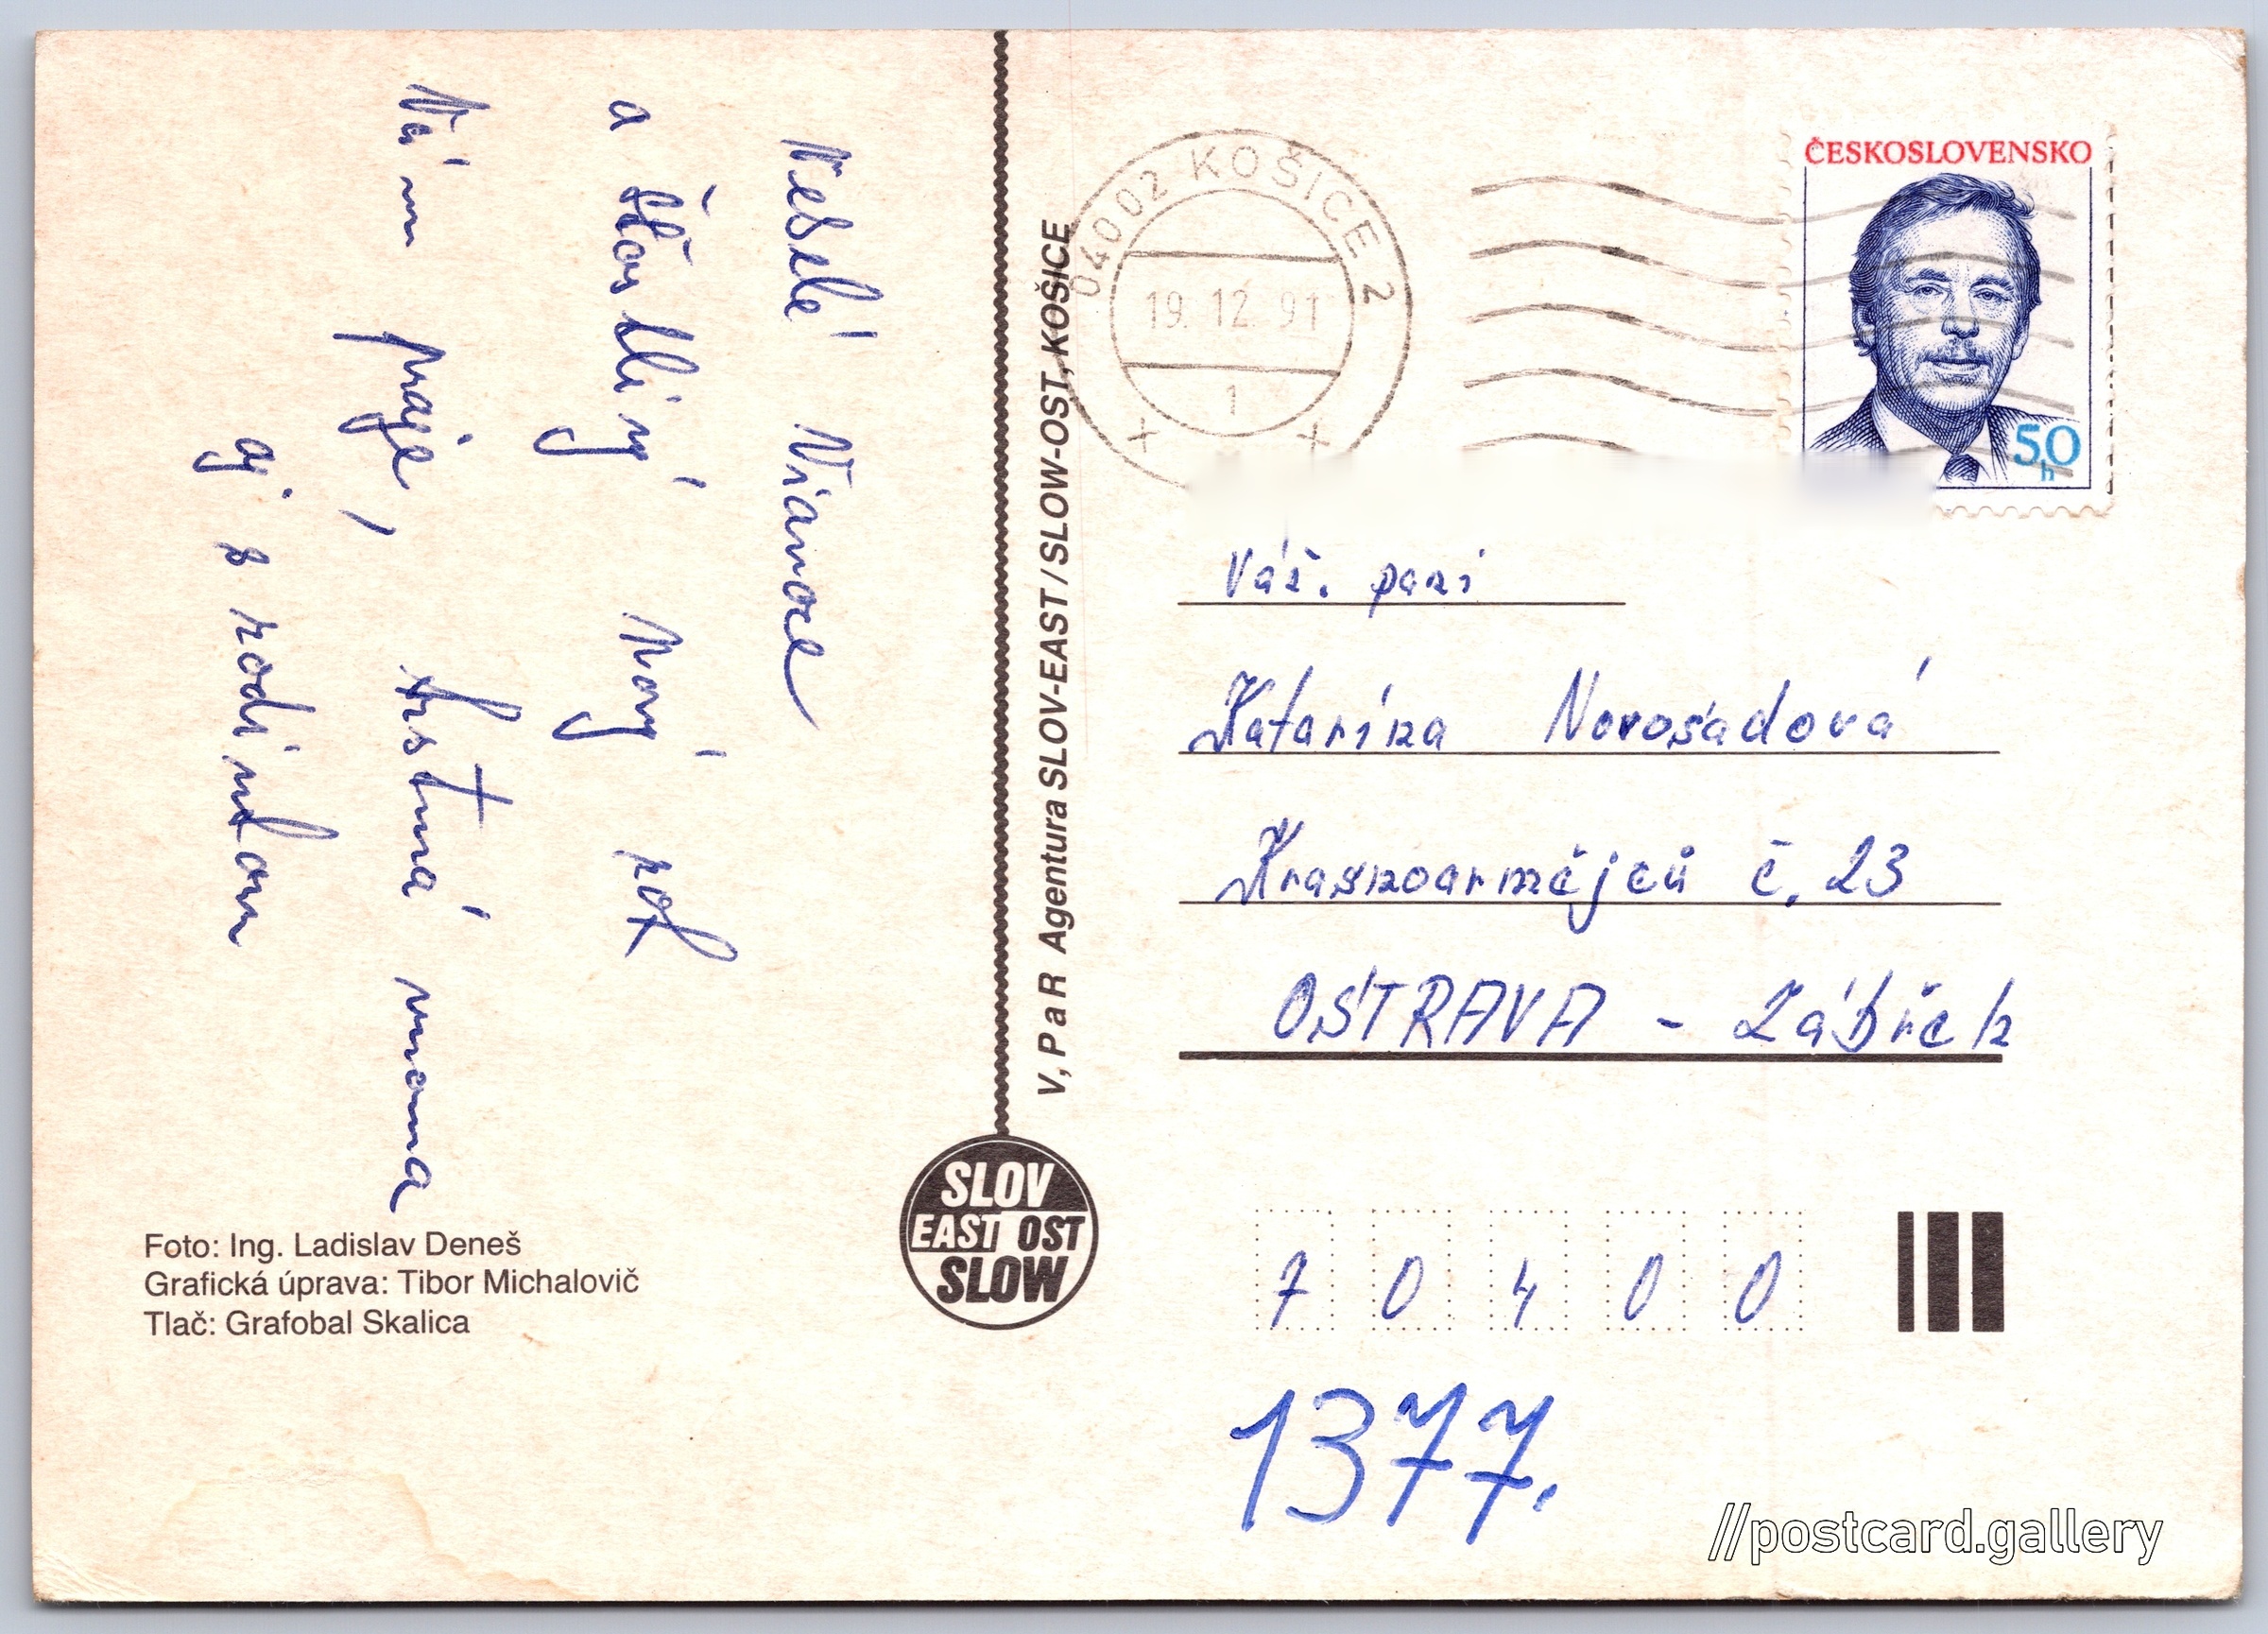 Veselé Vianoce
a Šťastlivý Nový rok
Vám praje, krstná mama
aj s rodinkou
Foto: Ing. Ladislav Deneš
Grafická úprava: Tibor Michalovič
Tlač: Grafobal Skalica
V, P a R Agentura SLOV-EAST / SLOW-OST, KOŠICE
SLOV
EAST OST
SLOW
040 02 KOŠICE 2
19. 12. 91
1
ČESKOSLOVENSKO
50
h
Váž. pani
Katarína Novosadová
Krasnoarmějců č. 23
OSTRAVA - Zábřeh
7 0 4 0 0
1377.
//postcard.gallery